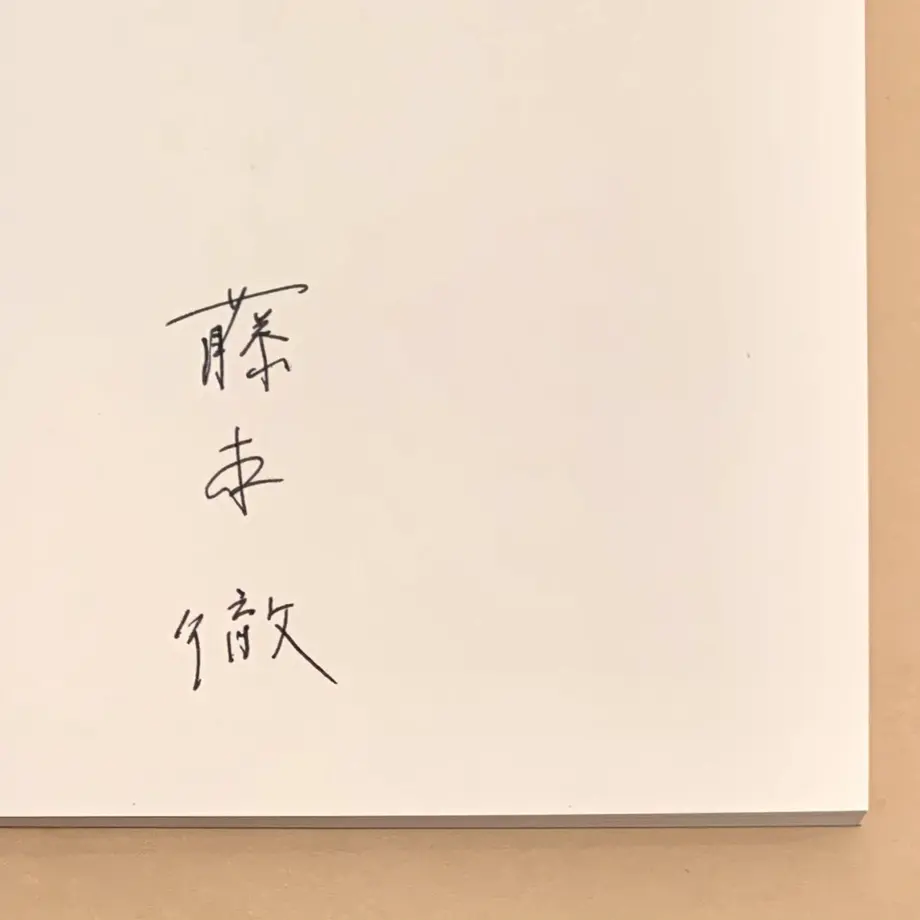 藤本徹